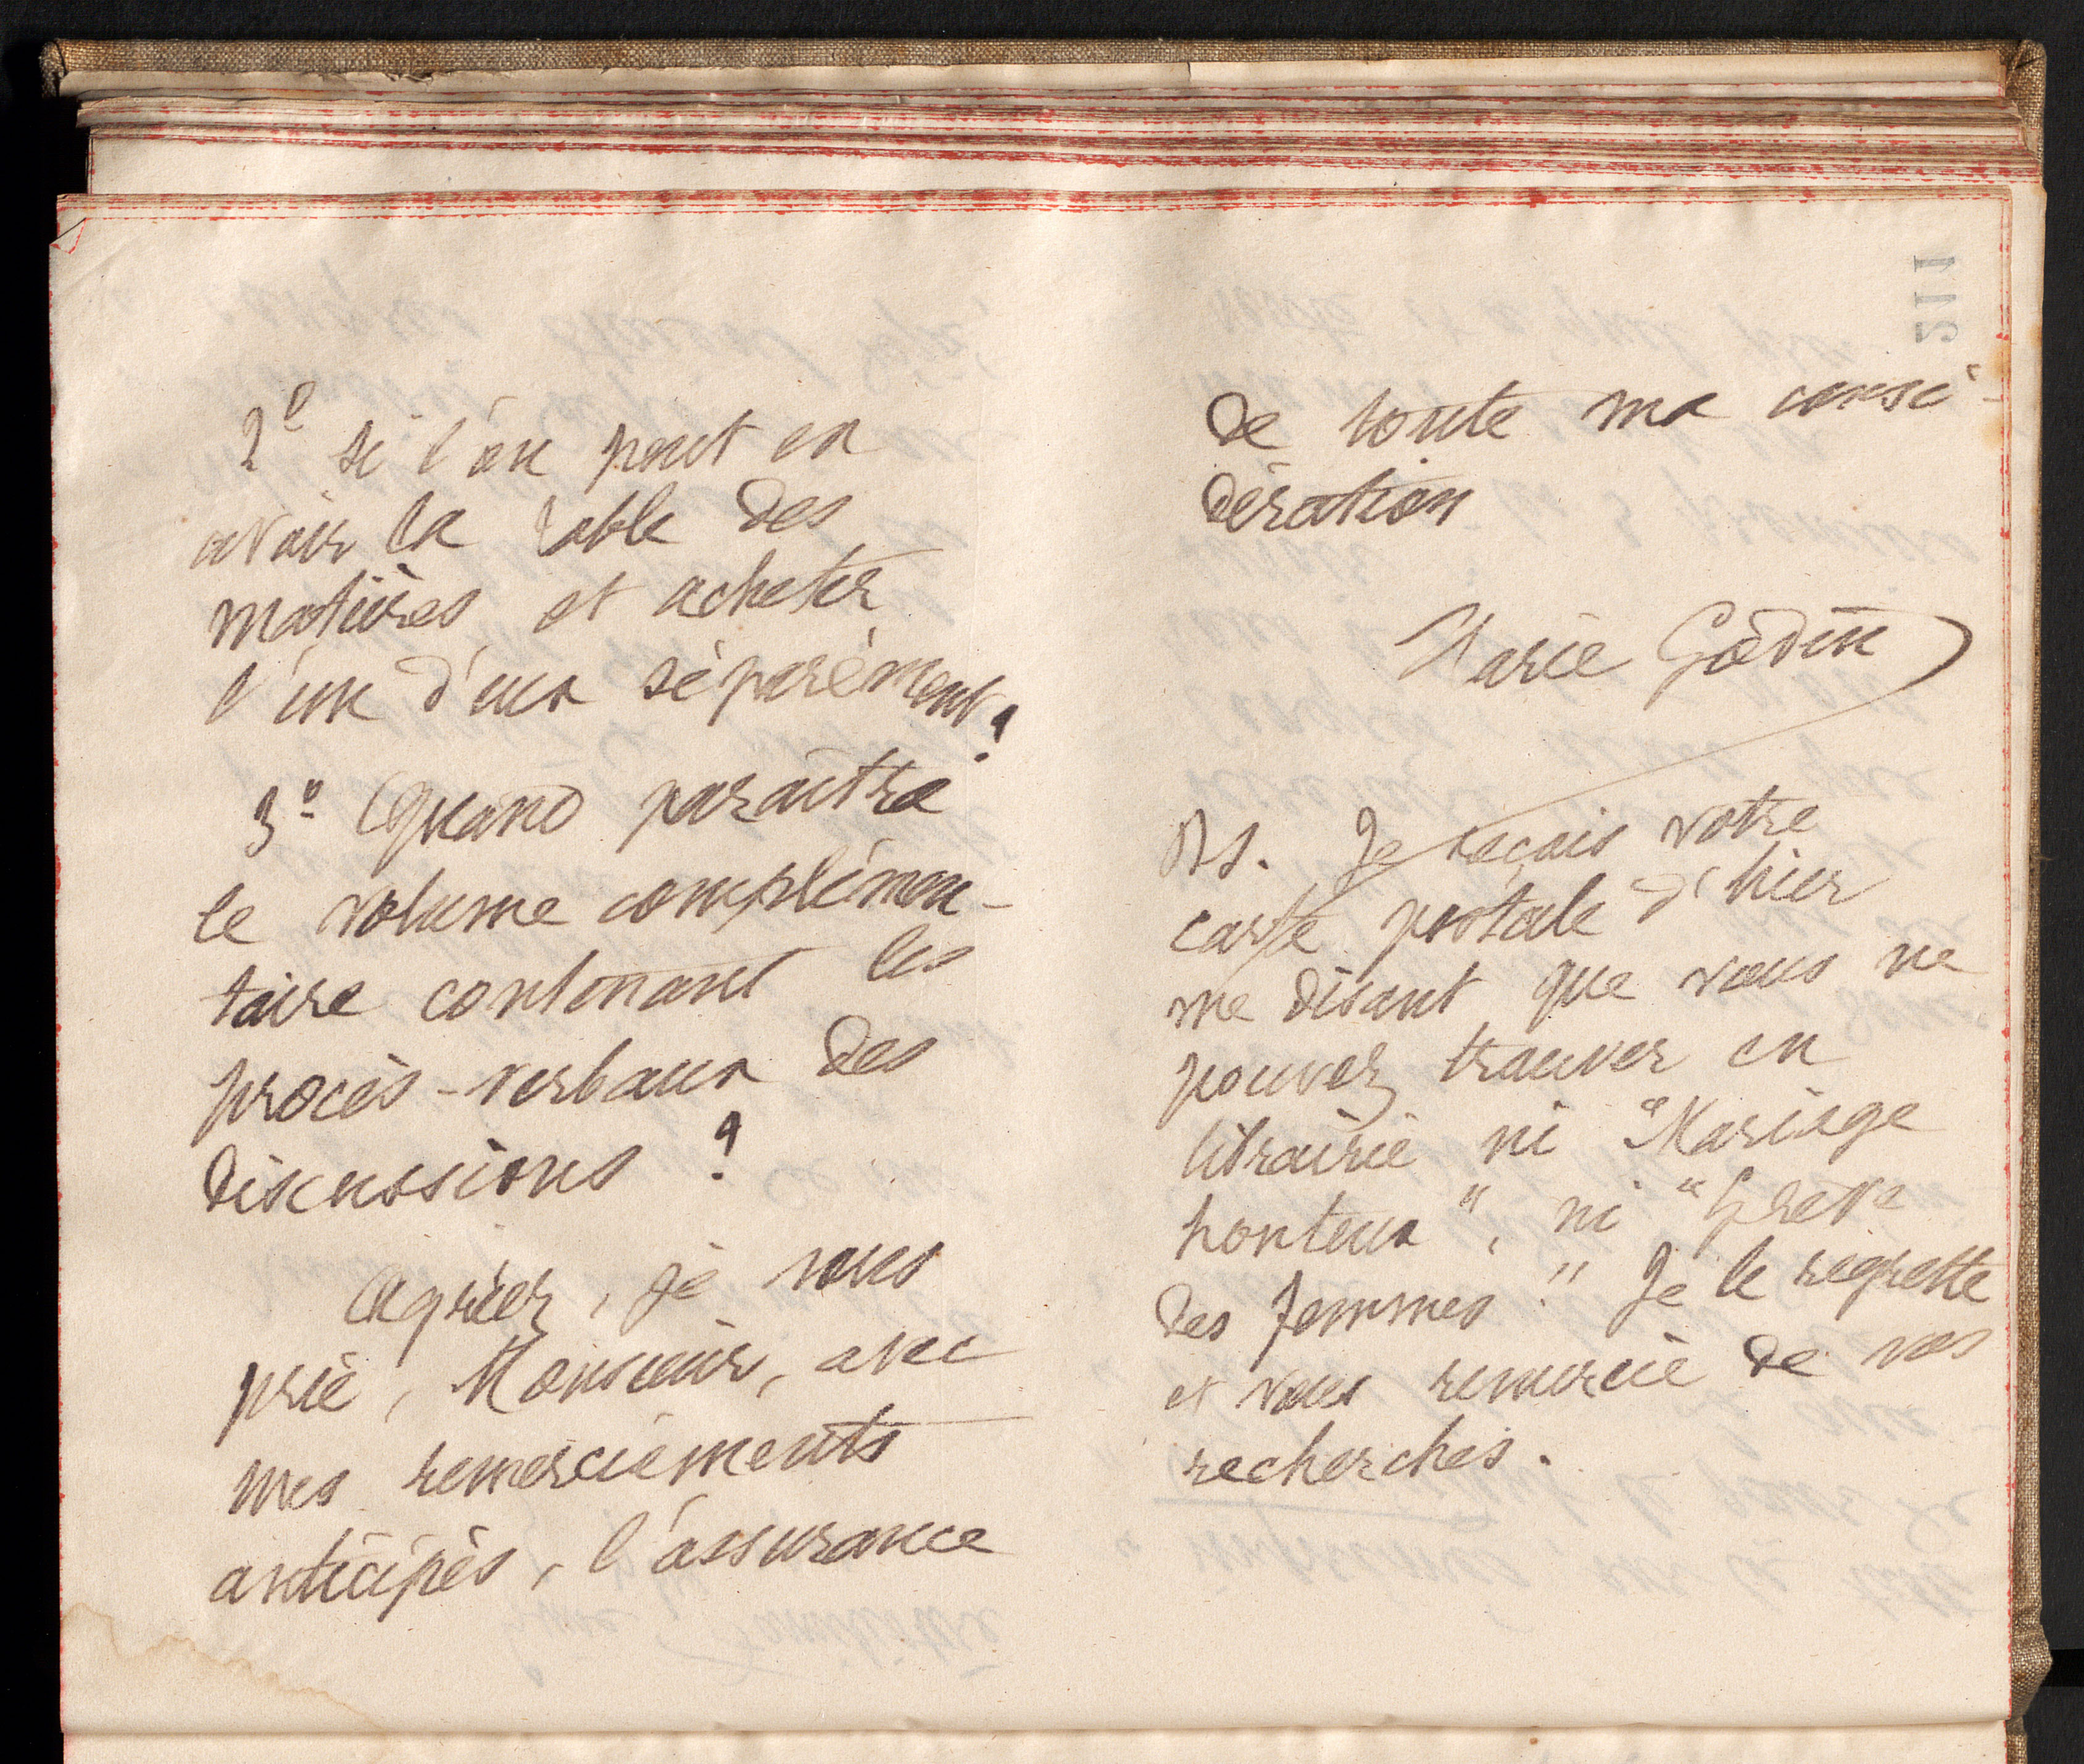 2º si l'on peut en
avoir la table des
matières et acheter
l'un d'eux séparément?
3º Quand paraîtra
le volume complémen-
taire contenant les
procès-verbaux des
discussions ?
Agréez, je vous
prie, Monsieur, avec
mes remerciements
anticipés, l'assurance
211
de toute ma consi-
dération
Marie Godin
PS. Je reçois votre
carte postale d'hier
me disant que vous ne
pouvez trouver en
librairie ni "Mariage
honteux", ni "Grève
des femmes" Je le regrette
et vous remercie de vos
recherches.